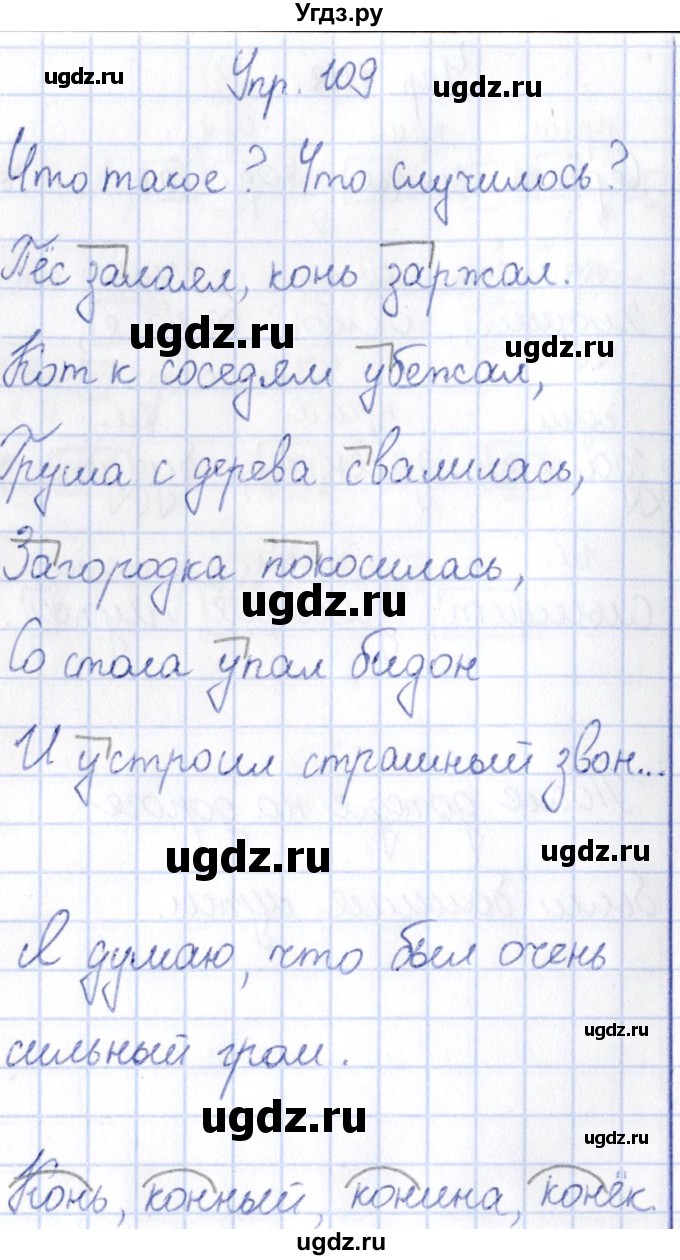 Угдз.ру
ugdz.ru
Упр. 109
ugdz.ru
Что такое? Что случилось?
Пёс залаял, конь заржал.
ugdz.ru
ugdz.ru
Кот к соседям убежал,
Груша с дерева свалилась,
Загородка покосилась,
ugdz.ru
Со стола упал бидон
И устроил страшный звон...
ugdz.ru
ugdz.ru
Я думаю, что был очень
ugdz.ru
сильный гром.
ugdz.ru
ugdz.ru
Конь, конный, конина, конёк.
ugdz.ru